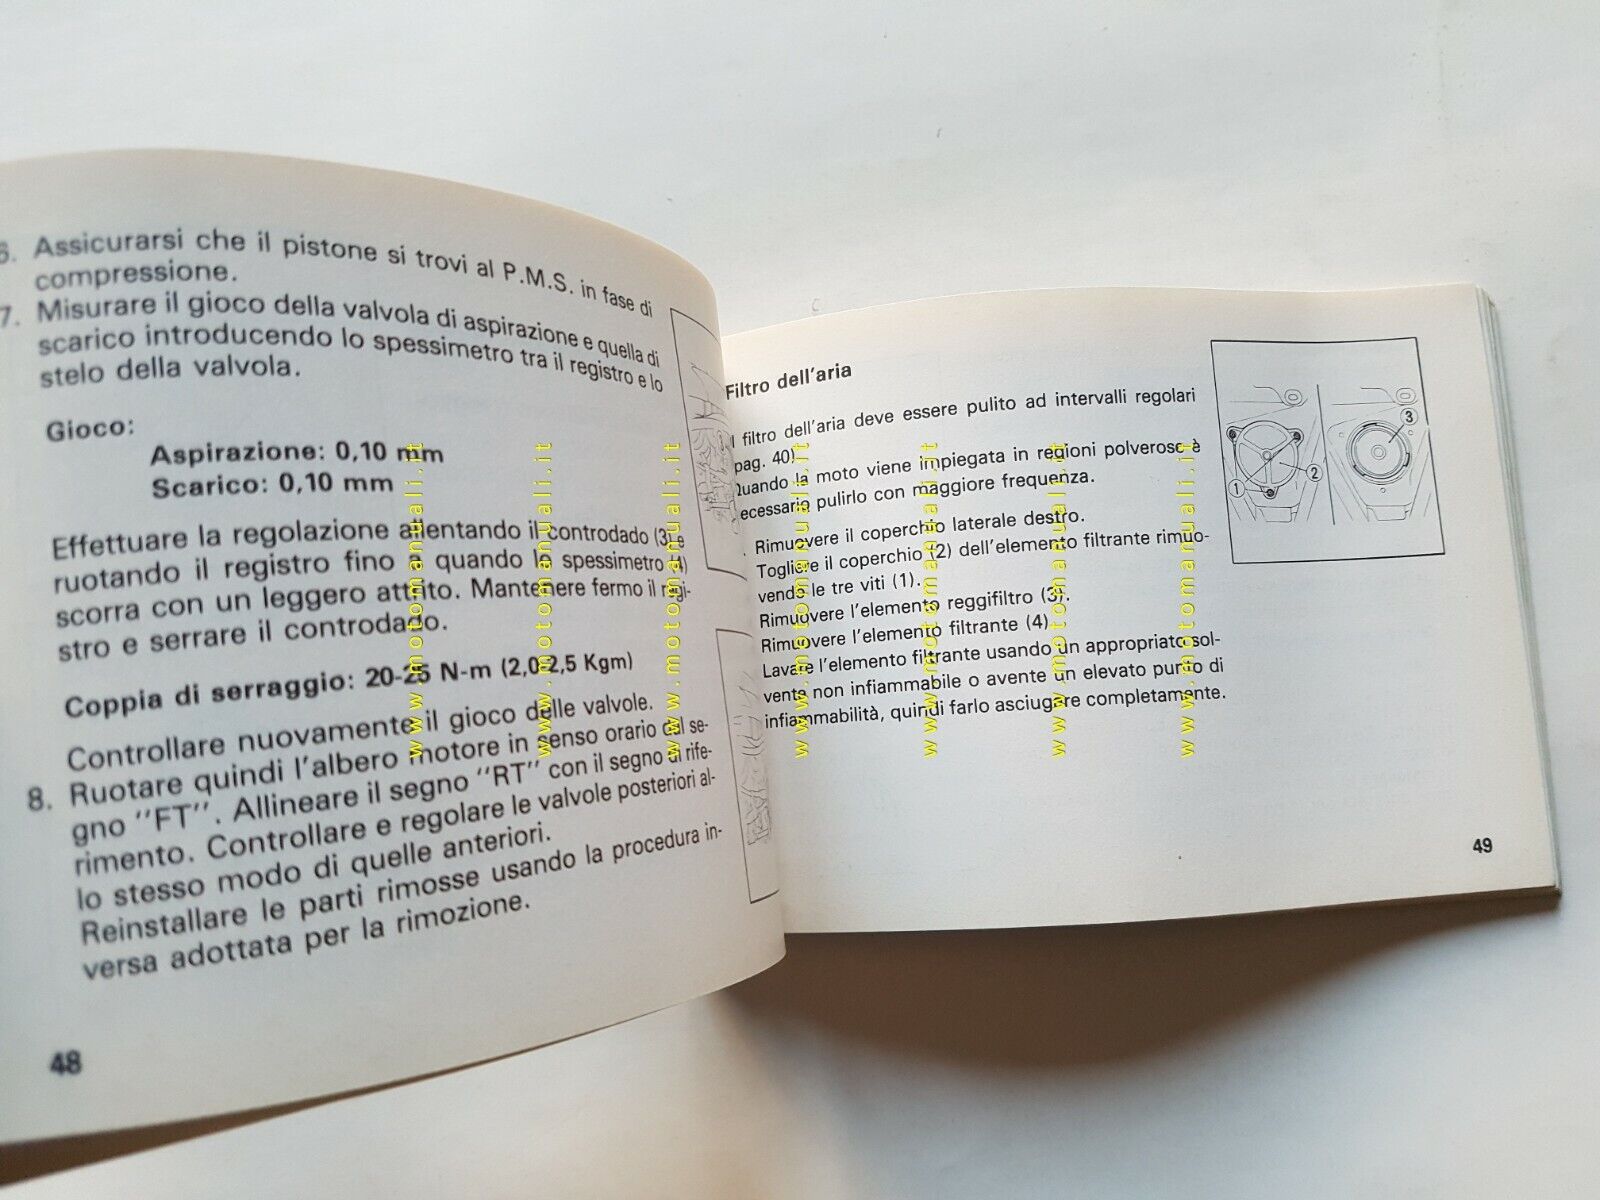 6. Assicurarsi che il pistone si trovi al P.M.S. in fase di
compressione.
7. Misurare il gioco della valvola di aspirazione e quella di
scarico introducendo lo spessimetro tra il registro e lo
stelo della valvola.
Gioco:
Aspirazione: 0,10 mm
Scarico: 0,10 mm
Effettuare la regolazione allentando il controdado (3) e
ruotando il registro fino a quando lo spessimetro (4)
scorra con un leggero attrito. Mantenere fermo il regi-
stro e serrare il controdado.
Coppia di serraggio: 20-25 N-m (2,0-2,5 Kgm)
Controllare nuovamente il gioco delle valvole.
8. Ruotare quindi l'albero motore in senso orario dal se-
gno "FT". Allineare il segno "RT" con il segno di rife-
rimento. Controllare e regolare le valvole posteriori al-
lo stesso modo di quelle anteriori.
Reinstallare le parti rimosse usando la procedura in-
versa adottata per la rimozione.
48
Filtro dell'aria
l filtro dell'aria deve essere pulito ad intervalli regolari
pag. 40)
Quando la moto viene impiegata in regioni polverose è
ecessario pulirlo con maggiore frequenza.
. Rimuovere il coperchio laterale destro.
Togliere il coperchio (2) dell'elemento filtrante rimuo-
vendo le tre viti (1).
Rimuovere l'elemento reggifiltro (3).
Rimuovere l'elemento filtrante (4)
Lavare l'elemento filtrante usando un appropriato sol-
vente non infiammabile o avente un elevato punto di
infiammabilità, quindi farlo asciugare completamente.
1
2
3
49
www.motomanuali.it
www.motomanuali.it
www.motomanuali.it
www.motomanuali.it
www.motomanuali.it
www.motomanuali.it
www.motomanuali.it